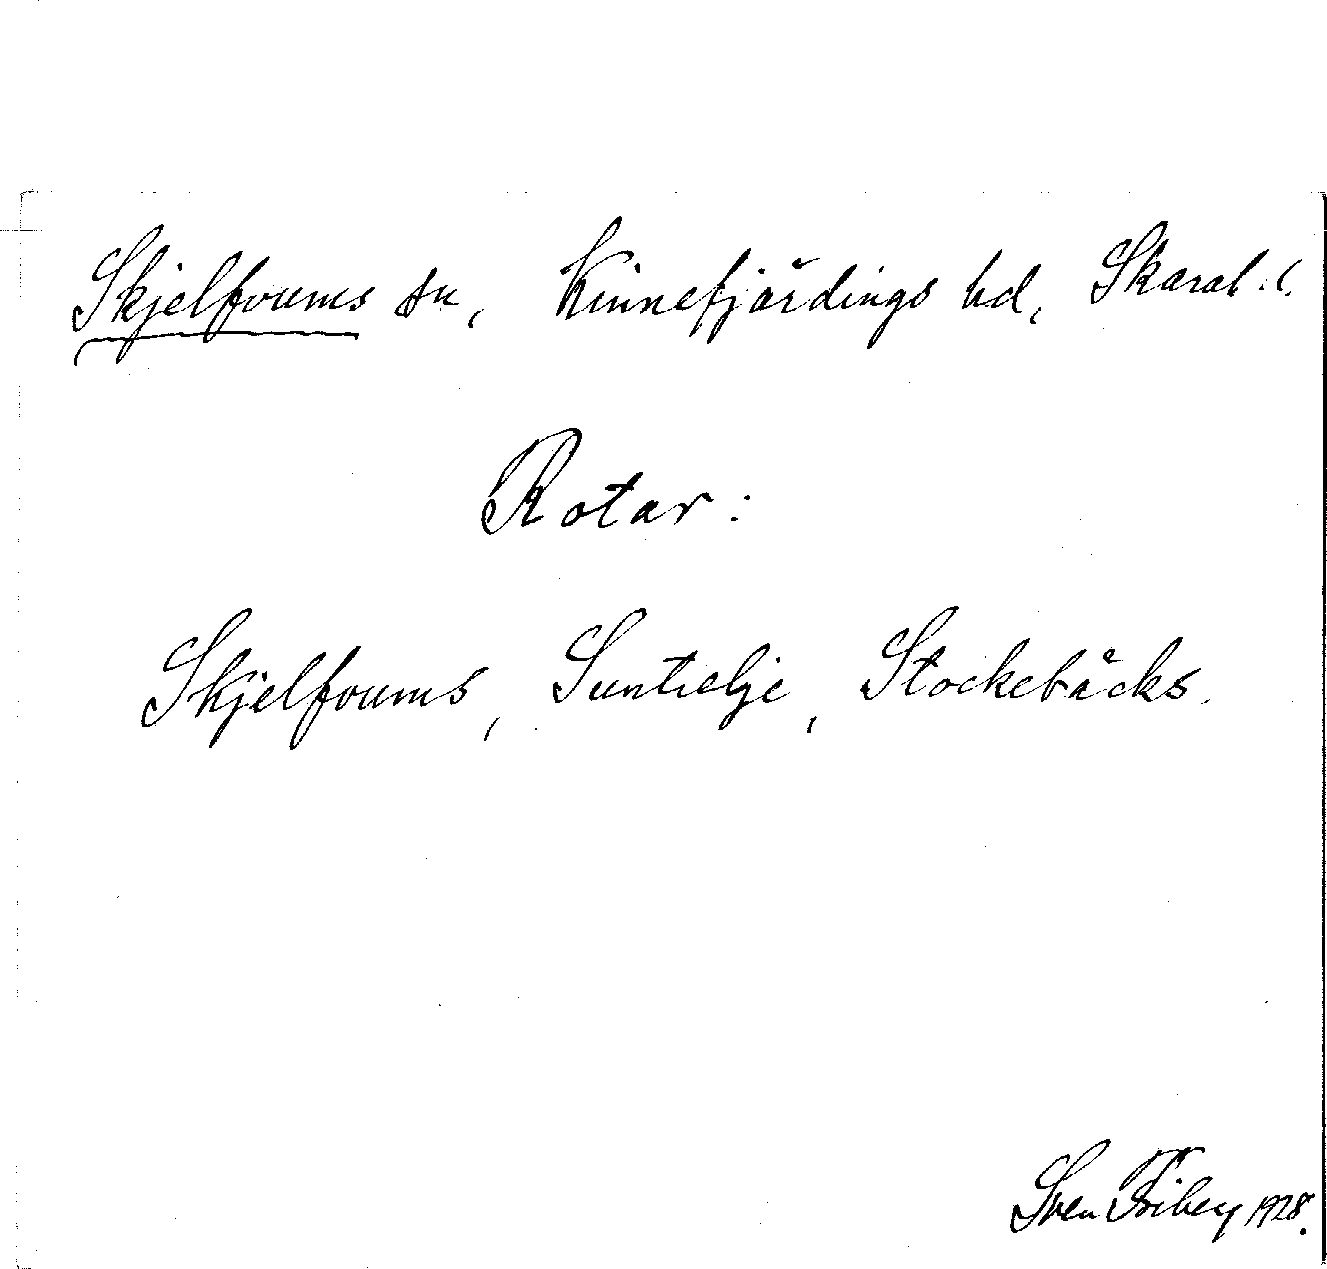 Skjelfvums sn, Kinnefjärdings hd, Skarab. l.
Rotar:
Skjelfvums, Suntielje, Stockebäcks.
Sven Friberg 1928.